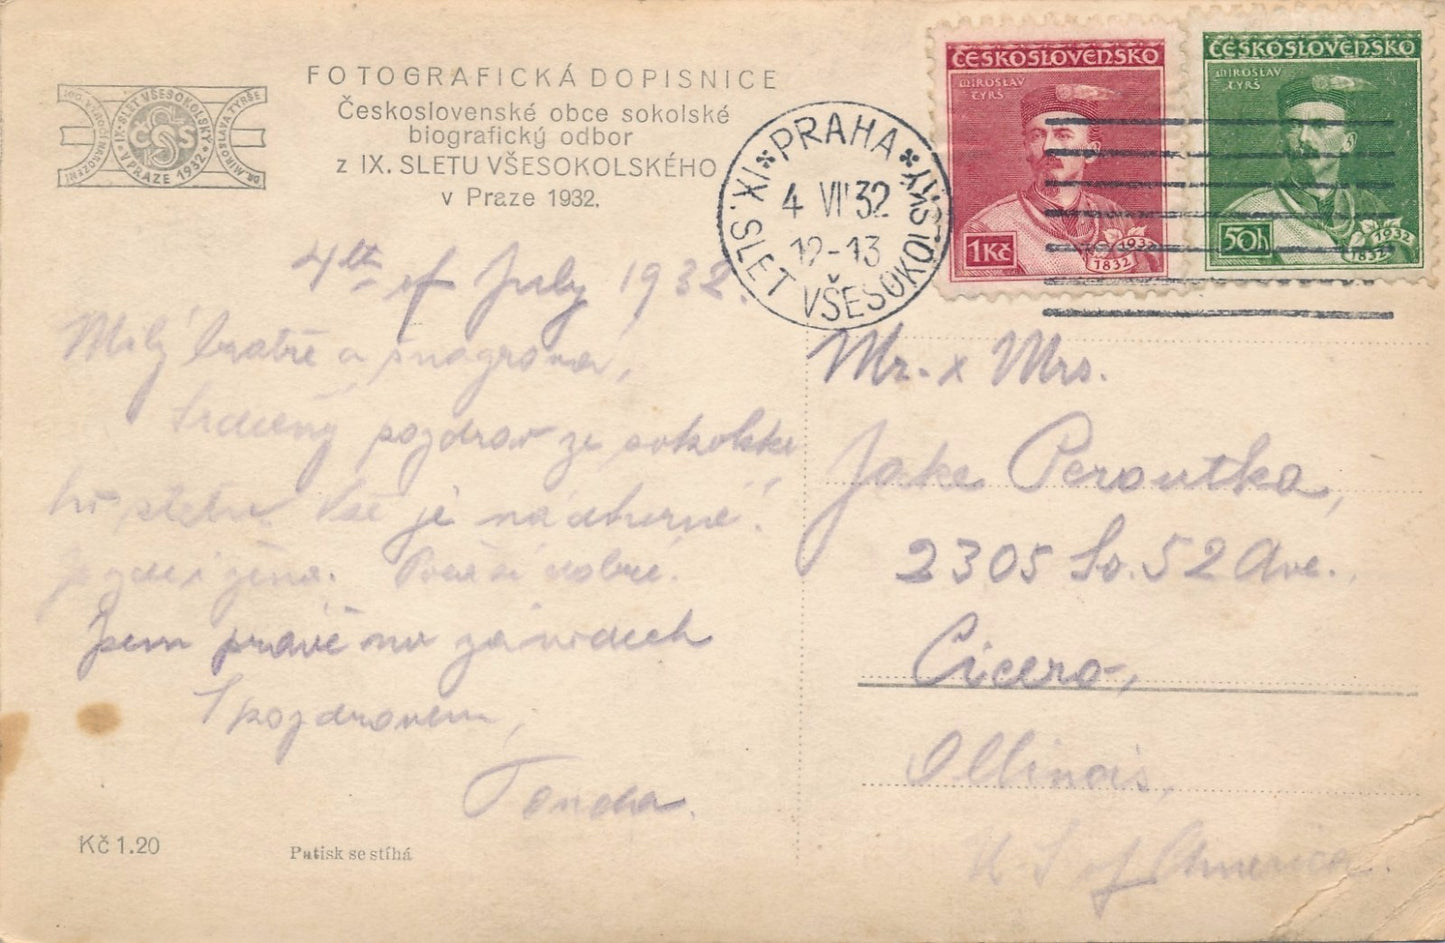 FOTOGRAFICKÁ DOPISNICE
Československé obce sokolské
biografický odbor
z IX. SLETU VŠESOKOLSKÉHO
v Praze 1932.
IX. SLET VŠESOKOLSKÝ
V PRAZE 1932
ČOS
PRAHA
4 VII 32
12-13
IX. SLET VŠESOKOLSKÝ
ČESKOSLOVENSKO
MIROSLAV
TYRŠ
1Kč
1832
1932
ČESKOSLOVENSKO
MIROSLAV
TYRŠ
50h
1832
1932
4th of July 1932.
Milý bratře a švagrová,
Srdečný pozdrav ze sokolské
sletu. Vše je nádherné!
žena. Počasí dobré.
Jsem právě na závodech
S pozdravem,
Tonda.
Mr. x Mrs.
Jake Peroutka,
2305 So. 52 Ave.,
Cicero,
Illinois,
U S of America.
Kč 1.20
Patisk se stíhá